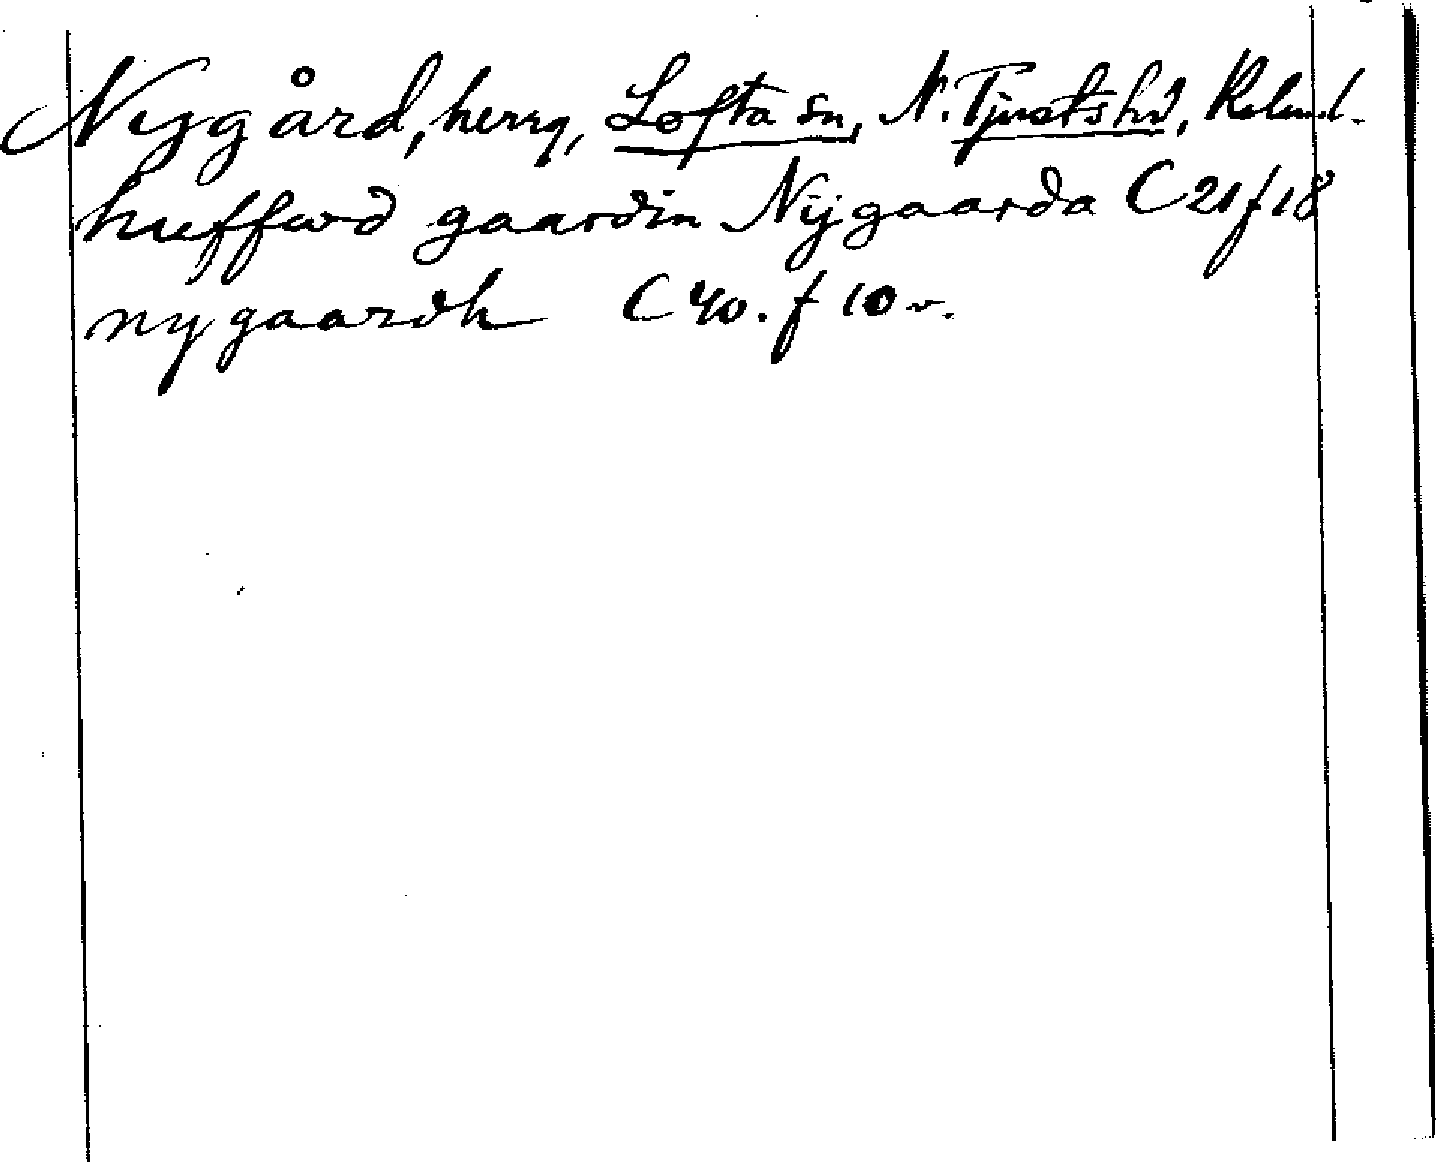 Nygård, herrg, Lofta sn, N. Tjusts hd, Kalm l.
huffwd gaardin Nijgaarda C 21 f 18
nygaardh C 40. f 10 v.